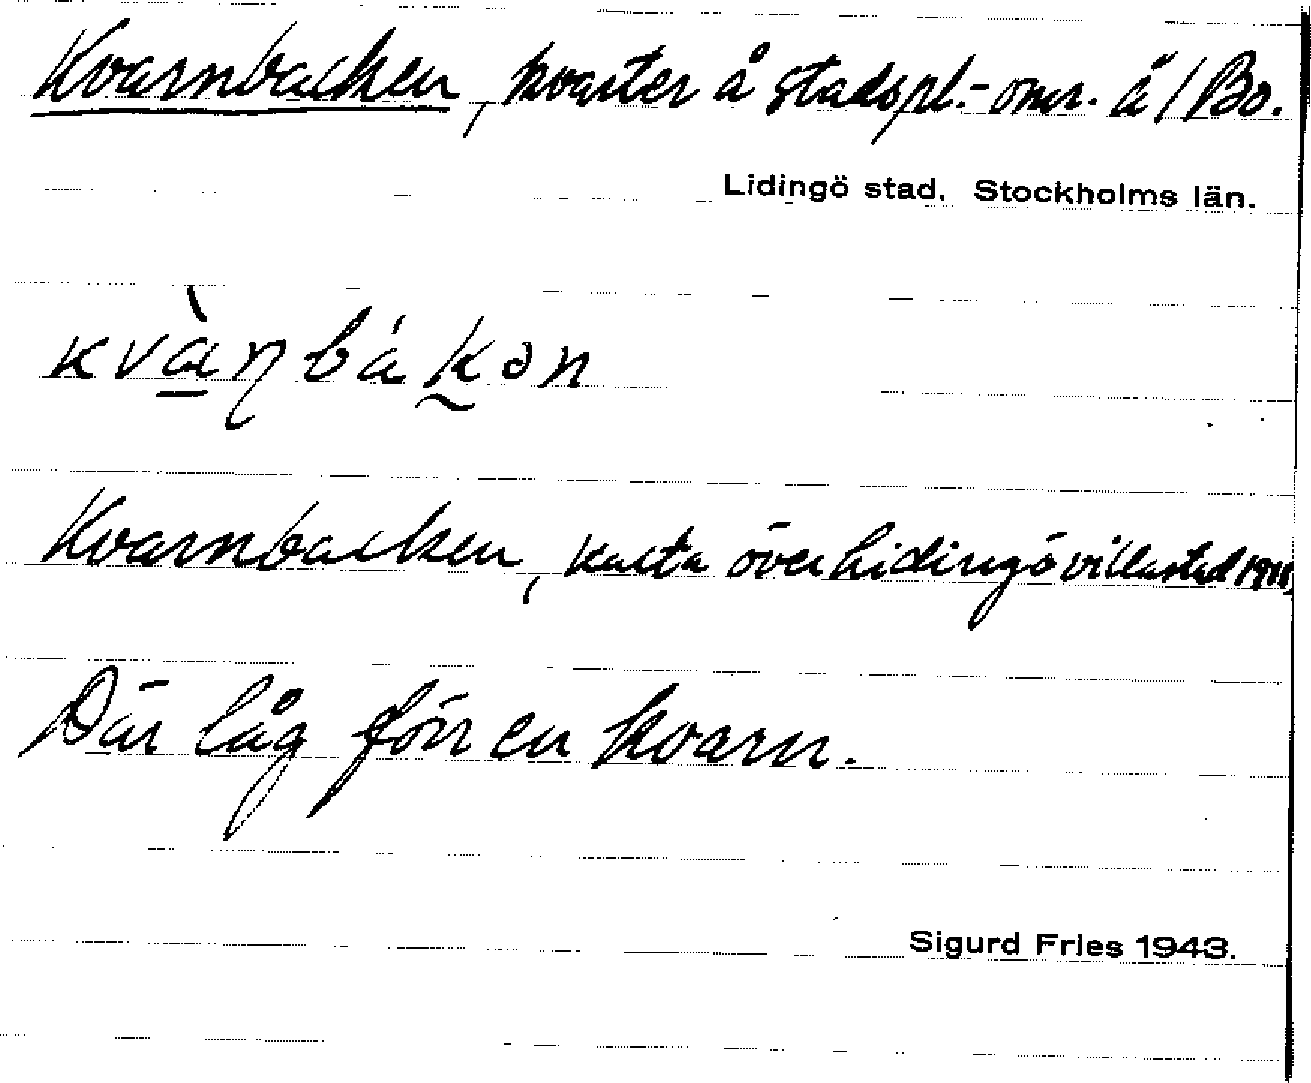 Kvarnbacken, kvarter å stadspl.-omr. å/Bo.
Lidingö stad. Stockholms län.
kvànbákən
Kvarnbacken, karta över Lidingö villastad
Där låg förr en kvarn.
Sigurd Fries 1943.